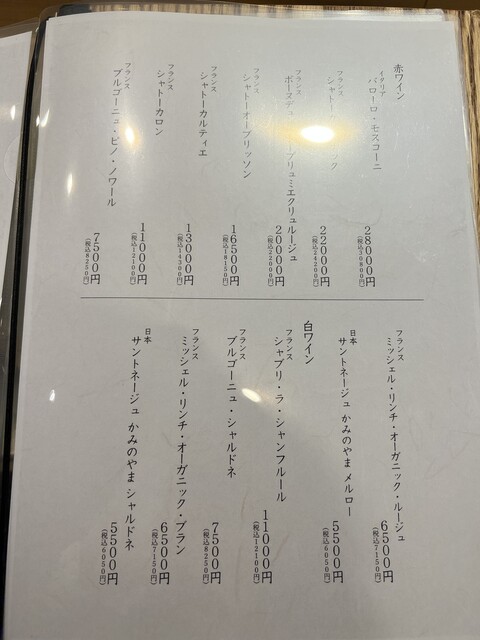 赤ワイン
イタリア
バローロ・モスコーニ
28000円
(税込30800円)
フランス
シャトー
ック
22000円
(税込24200円)
フランス
ボーヌデュ
プリュミエクリュルージュ
20000円
(税込22000円)
フランス
シャトーオーブリッソン
16500円
(税込18150円)
フランス
シャトーカルティエ
13000円
(税込14300円)
フランス
シャトーカロン
11000円
(税込12100円)
フランス
ブルゴーニュ・ピノ・ノワール
7500円
(税込8250円)
フランス
ミッシェル・リンチ・オーガニック・ルージュ
6500円
(税込7150円)
日本
サントネージュ かみのやま メルロー
5500円
(税込6050円)
白ワイン
フランス
シャブリ・ラ・シャンフルール
11000円
(税込12100円)
フランス
ブルゴーニュ・シャルドネ
7500円
(税込8250円)
フランス
ミッシェル・リンチ・オーガニック・ブラン
6500円
(税込7150円)
日本
サントネージュ かみのやま シャルドネ
5500円
(税込6050円)